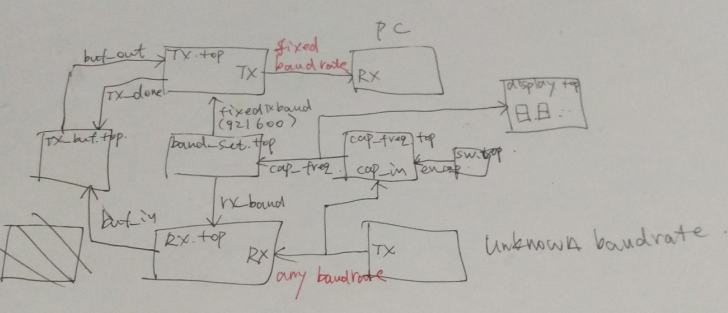 PC
buf_out
TX.top
TX
fixed
baudrate
RX
display top
TX_done
fixed tx baud
(921600)
TX_buf.top
baud_set.top
cap_freq top
cap_freq
cap_in
sw.top
rx_baud
buf_in
RX.top
RX
TX
any baudrate
unknown baudrate.